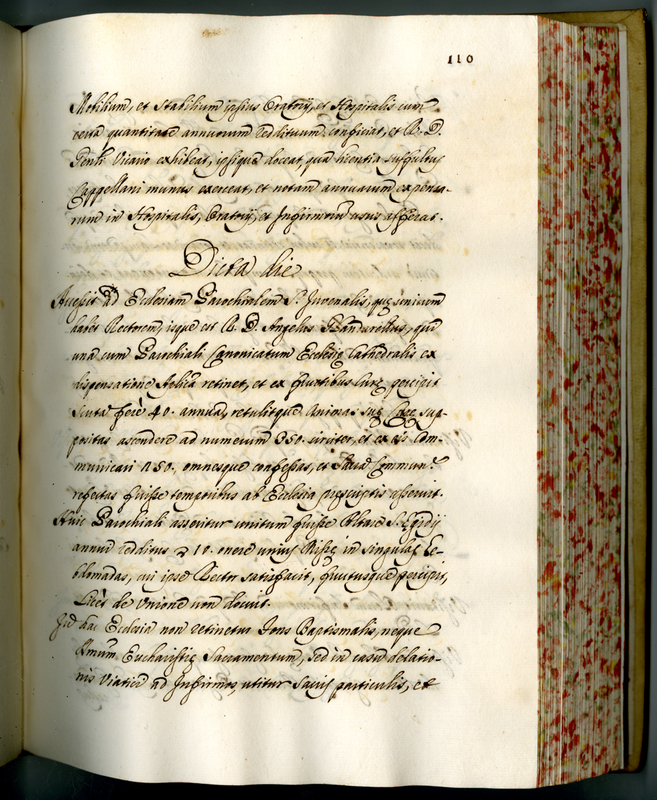 110
Mobilium, et Stabilium ipsius Oratorij, et Hospitalis cum
vera quantitate annuorum reddituum conficiat, et R. D.
Vicario exhibeat, ipsique doceat, qua licentia suffultus
Cappellani munus exerceat, et notam annuarum expensa-
rum in Hospitalis, Oratorij, et Infirmorum usus afferat.
Dicta die
Accessit ad Ecclesiam Parochialem S. Juvenalis, quę unicum
habet Rectorem, isque est R. D. Angelus Bandurellus, qui
una cum Parochiali Canonicatum Ecclesię Cathedralis ex
dispensatione Aplica retinet, et ex fructibus Curę percipit
Scuta ferè 40. annua, retulitque Animas suę Curę sup-
positas ascendere ad numerum 350. circiter, et ex eis Com-
municari 250., omnesque confessas, et Sacra Commun.
refectas fuisse temporibus ab Ecclesia pręscriptis asseruit.
Huic Parochiali asseritur unitum fuisse Altare S. Egidij
annui redditus 10. onere unius Missę in singulas he-
bdomadas, cui ipse Rector satisfacit, fructusque percipit,
Licèt de Unione non docuit.
In hac Ecclesia non retinetur Fons Baptismalis, neque
Smum Eucharistię Sacramentum, sed in casu delatio-
nis Viatici ad Infirmos, utitur Sacris particulis, et